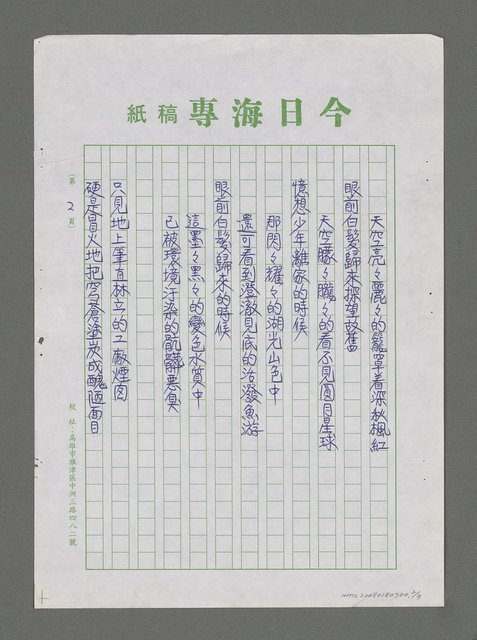 今日海專稿紙
天空亮々麗々的籠罩着深秋楓紅
眼前白髮歸來探望故舊
天空朦々朧々的看不見圓月星球
憶想少年離家的時候
那閃々耀々的湖光山色中
還可看到澄澈見底的活潑魚游
眼前白髮歸來的時候
這墨々黑々的變色水質中
已被環境汙染的骯髒惡臭
只見地上筆直林立的工廠煙囪
硬是冒火地把穹蒼塗炭成醜陋面目
(第2頁)
校址:高雄市旗津區中洲三路四八二號
NMTL20080180700, 2/3